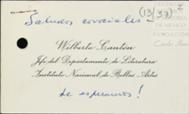 (13(37)2
Saludos cordiales
FUNDACIÓN
Wilberto Cantón
Jefe del Departamento de Literatura
Instituto Nacional de Bellas Artes
de esperamos!